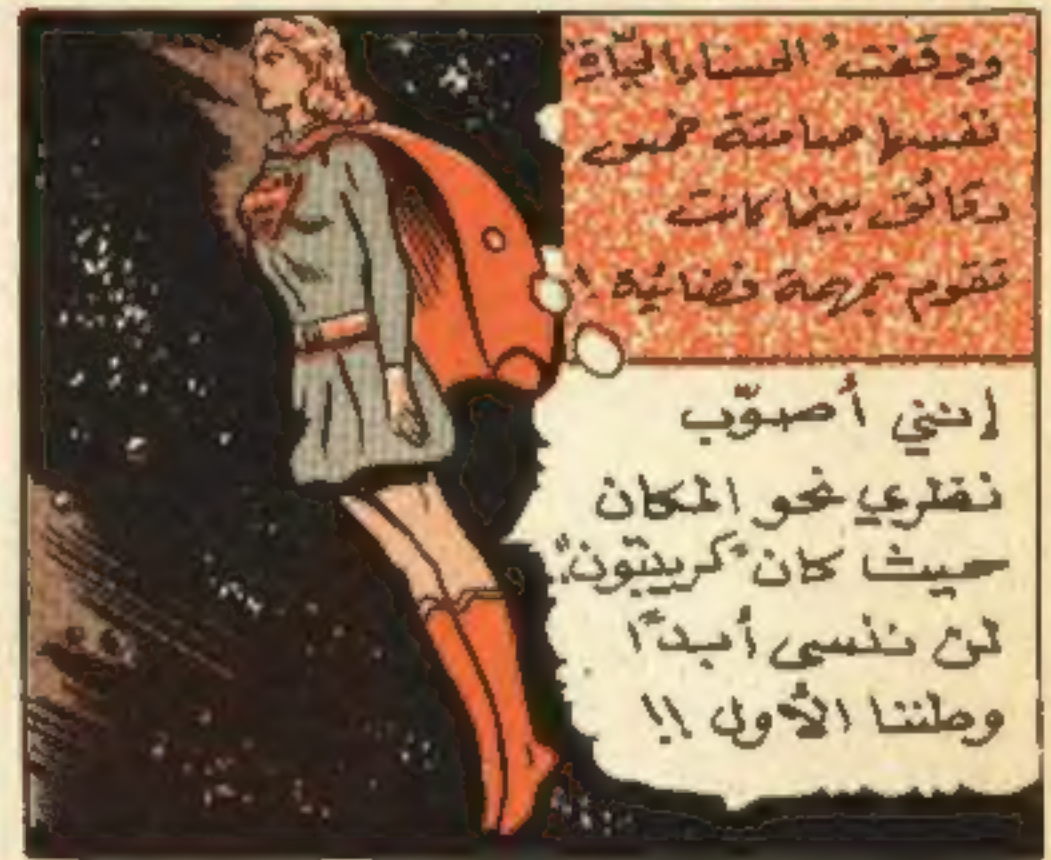 ووقفت "الحسناء الجبّارة"
نفسها صامتة خمس
دقائق بينما كانت
تقوم بمهمة فضائية !
إنني أصوّب
نظري نحو المكان
حيث كان "كريبتون"!
لن ننسى أبدًا
وطننا الأول !!